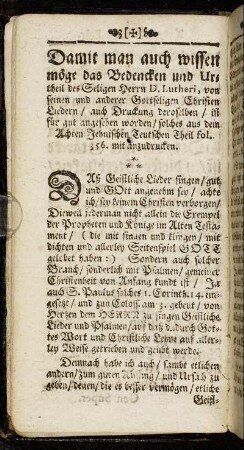 [+]
Damit man auch wissen
möge das Bedencken und Ur-
theil des Seligen Herrn D. Lutheri, von
seinen und anderer Gottseligen Christen
Liedern / auch Druckung deroselben / ist
für gut angesehen worden / solches aus dem
Achten Jehnischen Teutschen Theil fol.
356. mit anzudrucken.
* *
*
DAß Geistliche Lieder singen / gut
und GOtt angenehm sey / achte
ich / sey keinem Christen verborgen /
Dieweil jederman nicht allein die Exempel
der Propheten und Könige im Alten Testa-
ment / ( die mit singen und klingen / mit
dichten und allerley Seitenspiel GOTT
gelobet haben : ) Sondern auch solcher
Brauch / sonderlich mit Psalmen / gemeiner
Christenheit von Anfang kundt ist / Ja
auch S. Paulus solches 1. Corinth. 14. ein-
gesetzt / und zun Coloss. am 3. gebeut / von
Herzen dem HERRN zu singen Geistliche
Lieder und Psalmen / auf daß dadurch Got-
tes Wort und Christliche Lehre auf aller-
ley Weise getrieben und geübt werde.
Demnach habe ich auch / sambt etlichen
andern / zum guten Anfang / und Ursach zu
geben / denen / die es besser vermögen / etliche
Geistl-